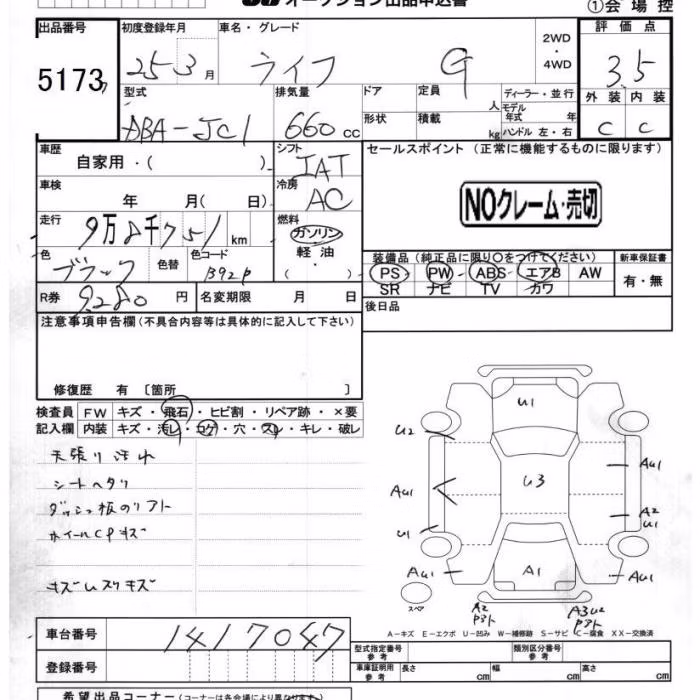 オークション出品申込書
①会場控
出品番号
初度登録年月
車名・グレード
2WD
・
4WD
評価点
5173
25 3月
ライフ
G
3.5
型式
排気量
ドア
定員
人
ディーラー・並行
モデル年式 年
外装 内装
DBA-JC1
660cc
形状
積載
kg
ハンドル 左・右
C C
車歴
自家用・( )
シフト
IAT
セールスポイント (正常に機能するものに限ります)
車検
年 月( 日)
冷房
AC
NOクレーム・売切
走行
9万8千751km
燃料
ガソリン・
軽油・
( )
色
ブラック
色替
色コード
B92P
装備品(純正品に限り〇をつけてください)
新車保証書
PS PW ABS エアB AW
有・無
SR ナビ TV カワ
R券
9280円
名変期限 月 日
後日品
注意事項申告欄(不具合内容等は具体的に記入して下さい)
修復歴 有 〔箇所 〕
検査員
記入欄
FW キズ・飛石・ヒビ割・リペア跡・×要
内装 キズ・汚レ・コゲ・穴・スレ・キレ・破レ
天張り汚れ
シートヘタリ
ダッシュ板のリフト
ホイールCPキズ
キズムスリキズ
U1
U2
AU1
U3
AU1
A2
U1
U1
AU1
A1
AU1
スペア
A2
Pヌケ
A3U2
Pヌケ
A-キズ E-エクボ U-凹み W-補修跡 S-サビ C-腐食 XX-交換済
車台番号
1417047
登録番号
型式指定番号
参考
類別区分番号
参考
車庫証明用
参考
長さ cm
幅 cm
高さ cm
希望出品コーナー(コーナーは各会場により異なります)